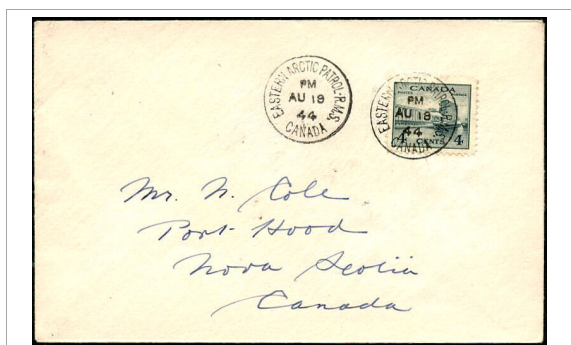 EASTERN ARCTIC PATROL-R.M.S.
PM
AU 18
44
CANADA
EASTERN ARCTIC PATROL-R.M.S.
PM
AU 18
44
CANADA
CANADA
POSTES POSTAGE
4 CENTS 4
Mr. N. Cole
Port Hood
Nova Scotia
Canada